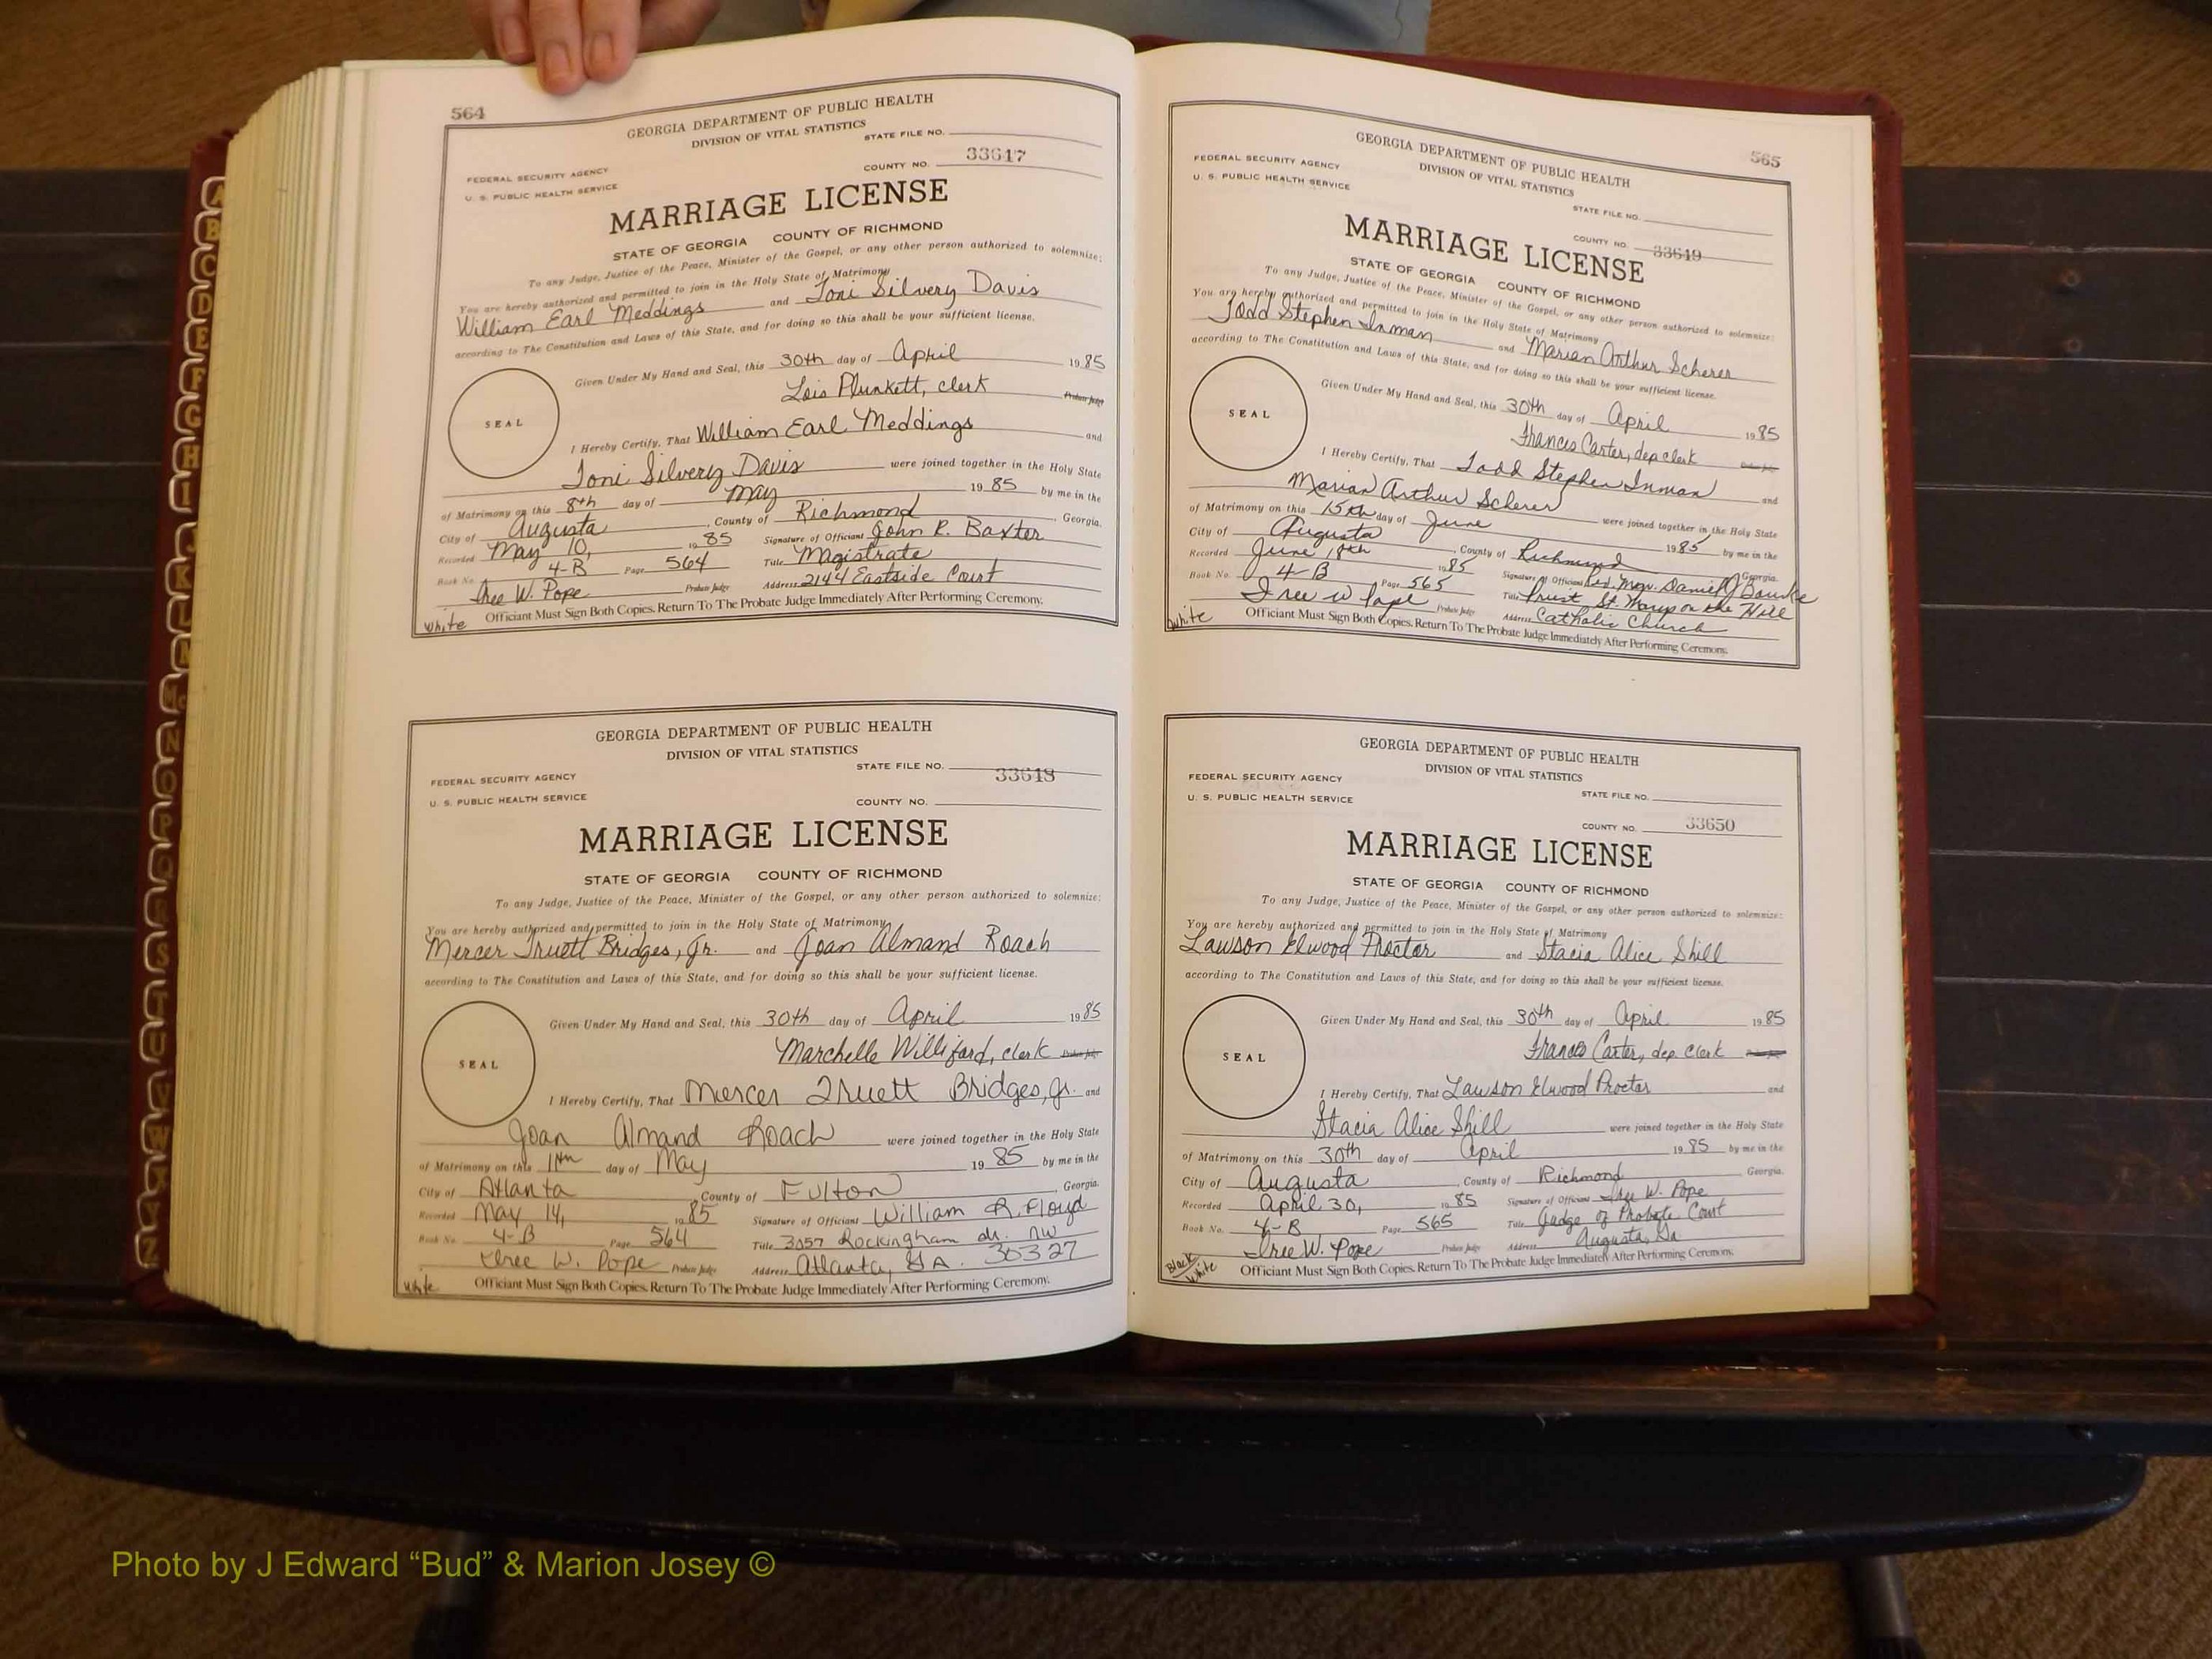 564
GEORGIA DEPARTMENT OF PUBLIC HEALTH
DIVISION OF VITAL STATISTICS
STATE FILE NO.
FEDERAL SECURITY AGENCY
U. S. PUBLIC HEALTH SERVICE
COUNTY NO. 33647
MARRIAGE LICENSE
STATE OF GEORGIA COUNTY OF RICHMOND
To any Judge, Justice of the Peace, Minister of the Gospel, or any other person authorized to solemnize:
You are hereby authorized and permitted to join in the Holy State of Matrimony
William Earl Meddings and Toni Silvery Davis
according to The Constitution and Laws of this State, and for doing so this shall be your sufficient license.
Given Under My Hand and Seal, this 30th day of April 1985
Lois Plunkett, clerk Probate Judge
SEAL
I Hereby Certify, That William Earl Meddings and
Toni Silvery Davis were joined together in the Holy State
of Matrimony on this 8th day of May 1985 by me in the
City of Augusta, County of Richmond, Georgia.
Recorded May 10, 1985 Signature of Officiant John R. Baxter
Book No. 4-B Page 564 Title Magistrate
Iree W. Pope Probate Judge Address 2144 Eastside Court
White Officiant Must Sign Both Copies. Return To The Probate Judge Immediately After Performing Ceremony.
GEORGIA DEPARTMENT OF PUBLIC HEALTH
DIVISION OF VITAL STATISTICS
STATE FILE NO. 33648
FEDERAL SECURITY AGENCY
U. S. PUBLIC HEALTH SERVICE
COUNTY NO.
MARRIAGE LICENSE
STATE OF GEORGIA COUNTY OF RICHMOND
To any Judge, Justice of the Peace, Minister of the Gospel, or any other person authorized to solemnize:
You are hereby authorized and permitted to join in the Holy State of Matrimony
Mercer Truett Bridges, Jr. and Joan Almand Roach
according to The Constitution and Laws of this State, and for doing so this shall be your sufficient license.
Given Under My Hand and Seal, this 30th day of April 1985
Marchelle Williford, clerk Probate Judge
SEAL
I Hereby Certify, That Mercer Truett Bridges, Jr. and
Joan Almand Roach were joined together in the Holy State
of Matrimony on this day of May 1985 by me in the
City of Atlanta, County of Fulton, Georgia.
Recorded May 14, 1985 Signature of Officiant William R. Floyd
Book No. 4-B Page 564 Title 3057 Rockingham dr. NW
Iree W. Pope Probate Judge Address Atlanta, GA. 30327
White Officiant Must Sign Both Copies. Return To The Probate Judge Immediately After Performing Ceremony.
565
GEORGIA DEPARTMENT OF PUBLIC HEALTH
DIVISION OF VITAL STATISTICS
FEDERAL SECURITY AGENCY
U. S. PUBLIC HEALTH SERVICE
STATE FILE NO.
COUNTY NO. 33649
MARRIAGE LICENSE
STATE OF GEORGIA COUNTY OF RICHMOND
To any Judge, Justice of the Peace, Minister of the Gospel, or any other person authorized to solemnize:
You are hereby authorized and permitted to join in the Holy State of Matrimony
Todd Stephen Inman and Marian Arthur Scherer
according to The Constitution and Laws of this State, and for doing so this shall be your sufficient license.
Given Under My Hand and Seal, this 30th day of April 1985
Frances Carter, dep clerk
SEAL
I Hereby Certify, That Todd Stephen Inman and
Marian Arthur Scherer were joined together in the Holy State
of Matrimony on this 15th day of June 1985 by me in the
City of Augusta, County of Richmond Georgia.
Recorded June 18th 1985 Signature of Officiant Rev. Msgr. Daniel J Bourke
Book No. 4-B Page 565 Title Priest St. Marys on the Hill
Iree W Pope Probate Judge Address Catholic Church
White Officiant Must Sign Both Copies. Return To The Probate Judge Immediately After Performing Ceremony.
GEORGIA DEPARTMENT OF PUBLIC HEALTH
DIVISION OF VITAL STATISTICS
FEDERAL SECURITY AGENCY
U. S. PUBLIC HEALTH SERVICE
STATE FILE NO.
COUNTY NO. 33650
MARRIAGE LICENSE
STATE OF GEORGIA COUNTY OF RICHMOND
To any Judge, Justice of the Peace, Minister of the Gospel, or any other person authorized to solemnize:
You are hereby authorized and permitted to join in the Holy State of Matrimony
Lawson Elwood Proctor and Stacia Alice Shill
according to The Constitution and Laws of this State, and for doing so this shall be your sufficient license.
Given Under My Hand and Seal, this 30th day of April 1985
Frances Carter, dep. clerk
SEAL
I Hereby Certify, That Lawson Elwood Proctor and
Stacia Alice Shill were joined together in the Holy State
of Matrimony on this 30th day of April 1985 by me in the
City of Augusta, County of Richmond Georgia.
Recorded April 30, 1985 Signature of Officiant Iree W. Pope
Book No. 4-B Page 565 Title Judge of Probate Court
Iree W. Pope Probate Judge Address Augusta, Ga
Black White Officiant Must Sign Both Copies. Return To The Probate Judge Immediately After Performing Ceremony.
Photo by J Edward “Bud” & Marion Josey ©